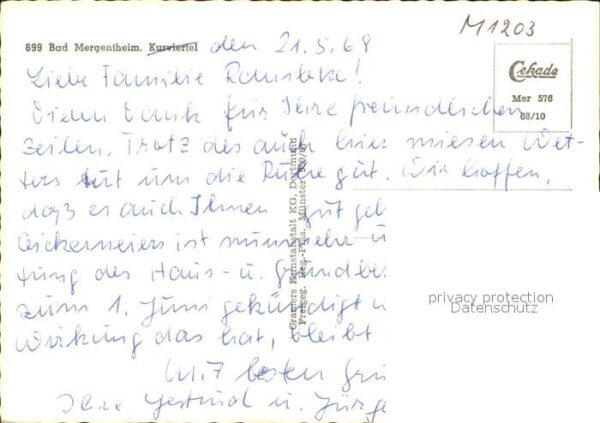 M1203
699 Bad Mergentheim. Kurviertel den 21.5.68
Cekade
Mer 576
68/10
Liebe Familie
Vielen Dank für Ihre freundlichen
Zeilen. Trotz des auch hier miesen Wet-
ters tut uns die Ruhe gut. Wir hoffen,
daß es auch Ihnen gut geh
ist nunmehr u
tung des Haus- u. Grundbes
zum 1. Juni gekündigt w
Wirkung das hat, bleibt
Mit besten Grü
Ihre Gertrud u. Jürge
Cramers Kunstanstalt KG, Dortmund
Freigeg. Reg.-Präs. Münster
privacy protection
Datenschutz